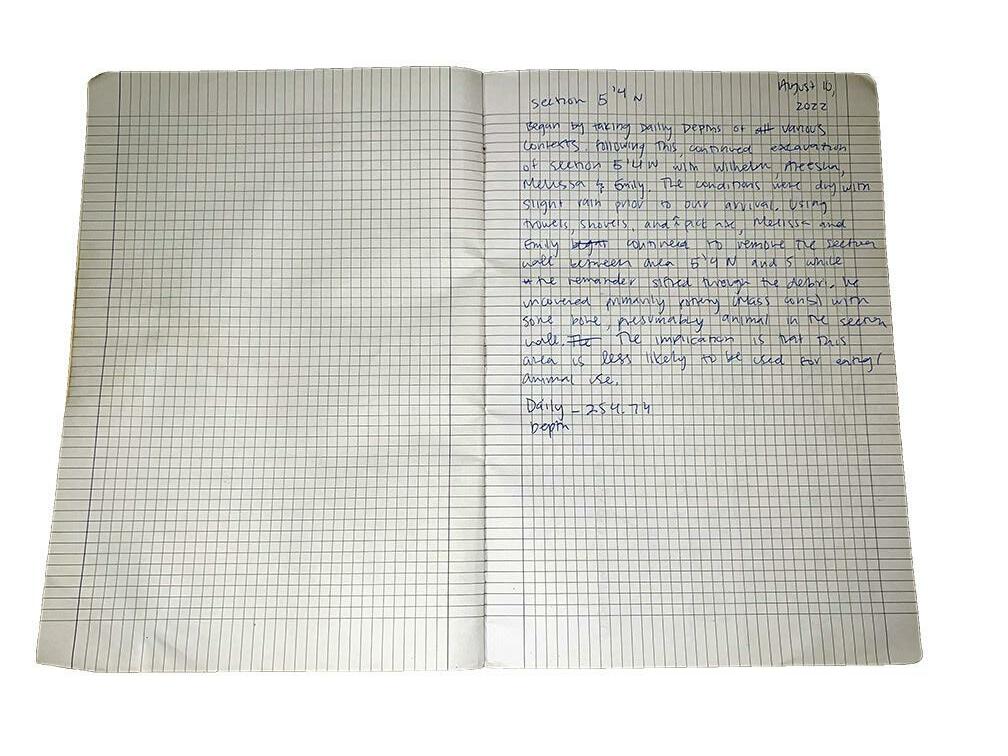 August 10,
2022
Section 5'4 N
Began by taking Daily Depths of all various
contexts. Following this, continued excavation
of section 5'4 N with Wilhelm, Areesha,
Melissa & Emily. The conditions were dry with
slight rain prior to our arrival. Using
trowels, shovels, and a pick axe, Melissa and
Emily continued to remove the section
wall between area 5'4 N and 5 while
the remainder sifted through the debri. We
uncovered primarily pottery (Mass cons) with
some bone, presumably animal in the section
wall. The implication is that this
area is less likely to be used for eating/
animal use.
Daily - 254.74
Depth